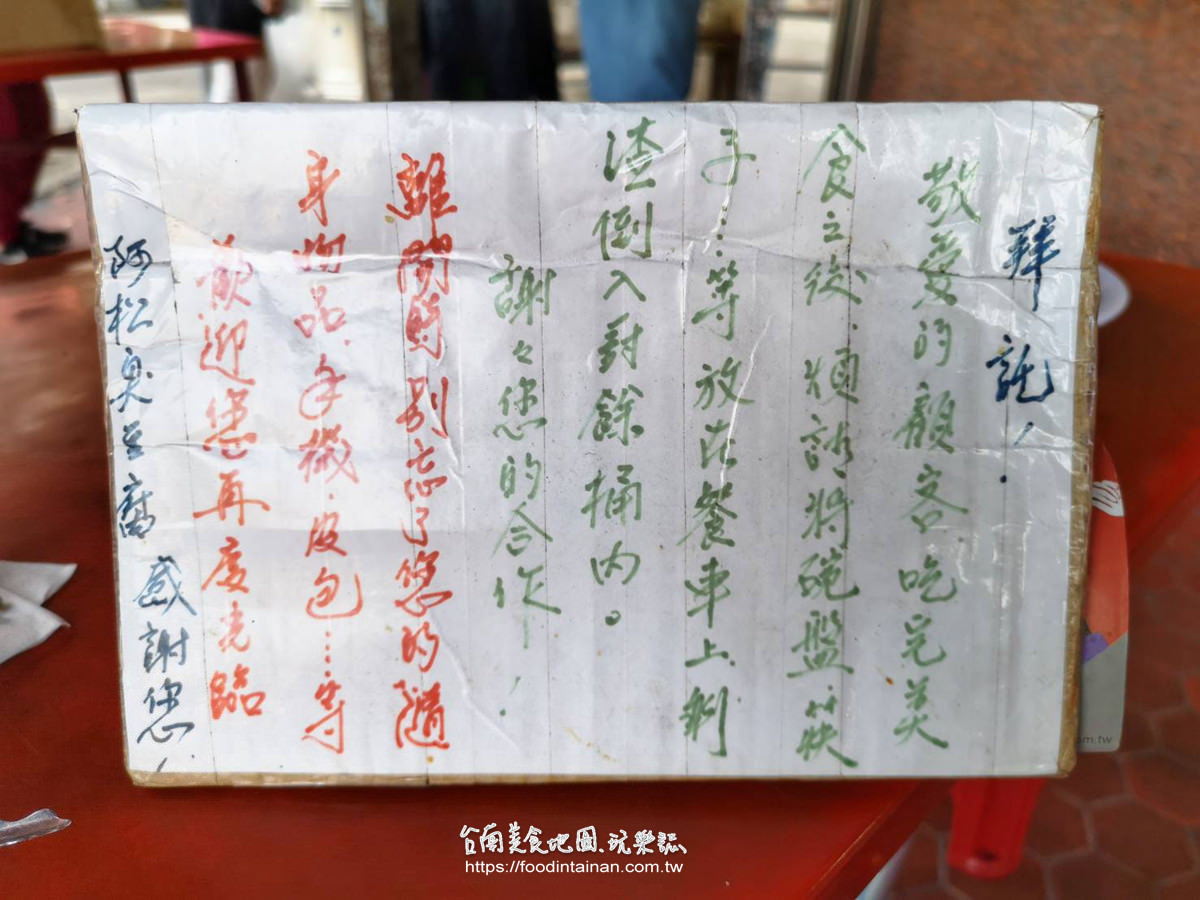 拜託！
敬愛的顧客吃完美
食之後.煩請將碗盤.筷
子……等放在餐車上.剩
渣倒入對餘桶內。
謝々您的合作！
離開時別忘了您的隨
身物品.手機.皮包……等
歡迎您再度光臨
阿松臭豆腐 感謝您！
om.tw
台南美食地圖.玩樂誌
https://foodintainan.com.tw